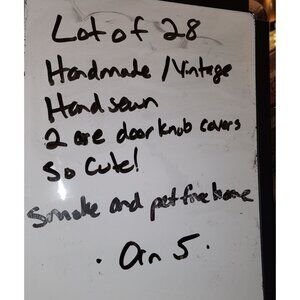 Lot of 28
Handmade / Vintage
Hand sewn
2 are door knob covers
So Cute!
Smoke and pet free home
· Orn 5 ·